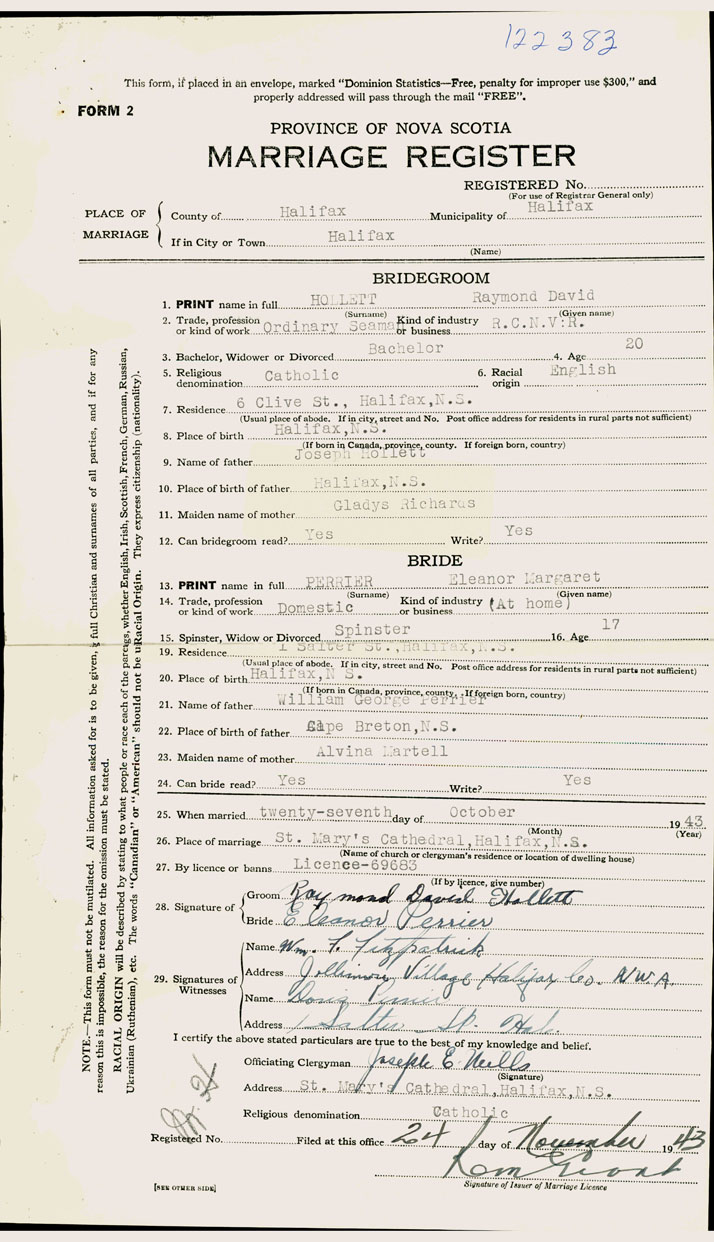 122383
This form, if placed in an envelope, marked “Dominion Statistics—Free, penalty for improper use $300,” and
properly addressed will pass through the mail “FREE”.
FORM 2
PROVINCE OF NOVA SCOTIA
MARRIAGE REGISTER
REGISTERED No.
(For use of Registrar General only)
PLACE OF MARRIAGE
County of Halifax Municipality of Halifax
If in City or Town Halifax
(Name)
BRIDEGROOM
1. PRINT name in full HOLLETT Raymond David
(Surname) (Given name)
2. Trade, profession or kind of work Ordinary Seaman Kind of industry or business R.C.N.V.R.
3. Bachelor, Widower or Divorced Bachelor 4. Age 20
5. Religious denomination Catholic 6. Racial origin English
7. Residence 6 Clive St., Halifax,N.S.
(Usual place of abode. If in city, street and No. Post office address for residents in rural parts not sufficient)
8. Place of birth Halifax,N.S.
(If born in Canada, province, county. If foreign born, country)
9. Name of father Joseph Hollett
10. Place of birth of father Halifax,N.S.
11. Maiden name of mother Gladys Richards
12. Can bridegroom read? Yes Write? Yes
BRIDE
13. PRINT name in full PERRIER Eleanor Margaret
(Surname) (Given name)
14. Trade, profession or kind of work Domestic Kind of industry or business (At home)
15. Spinster, Widow or Divorced Spinster 16. Age 17
19. Residence 1 Salter St.,Halifax,N.S.
(Usual place of abode. If in city, street and No. Post office address for residents in rural parts not sufficient)
20. Place of birth Halifax,N S.
(If born in Canada, province, county. If foreign born, country)
21. Name of father William George Perrier
22. Place of birth of father Cape Breton,N.S.
23. Maiden name of mother Alvina Martell
24. Can bride read? Yes Write? Yes
25. When married twenty-seventh day of October 1943
(Month) (Year)
26. Place of marriage St. Mary's Cathedral,Halifax,N.S.
(Name of church or clergyman's residence or location of dwelling house)
27. By licence or banns Licence-69683
(If by licence, give number)
28. Signature of
Groom Raymond David Hollett
Bride Eleanor Perrier
29. Signatures of Witnesses
Name Wm. F. Fitzpatrick
Address Jollimore Village Halifax Co. N.W.A.
Name
Address Salter St. Hal.
I certify the above stated particulars are true to the best of my knowledge and belief.
Officiating Clergyman Joseph E. Neills
(Signature)
Address St. Mary's Cathedral,Halifax,N.S.
Religious denomination Catholic
Registered No. Filed at this office 24 day of November 1943
Signature of Issuer of Marriage Licence
[SEE OTHER SIDE]
NOTE.—This form must not be mutilated. All information asked for is to be given, full Christian and surnames of all parties, and if for any
reason this is impossible, the reason for the omission must be stated.
RACIAL ORIGIN will be described by stating to what people or race each of the parties, whether English, Irish, Scottish, French, German, Russian,
Ukrainian (Ruthenian), etc. The words “Canadian” or “American” should not be used Racial Origin. They express citizenship (nationality).